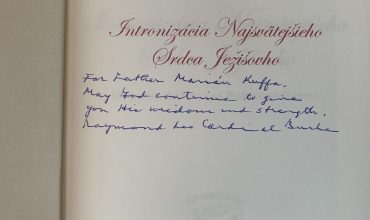 Intronizácia Najsvätejšieho
Srdca Ježišovho
For Father Marián Kuffa.
May God continue to give
you His wisdom and strength.
Raymond Leo Cardinal Burke